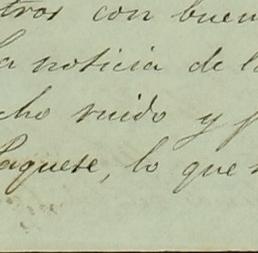 tros con buen
la noticia de l
cho ruido y p
Paquete, lo que